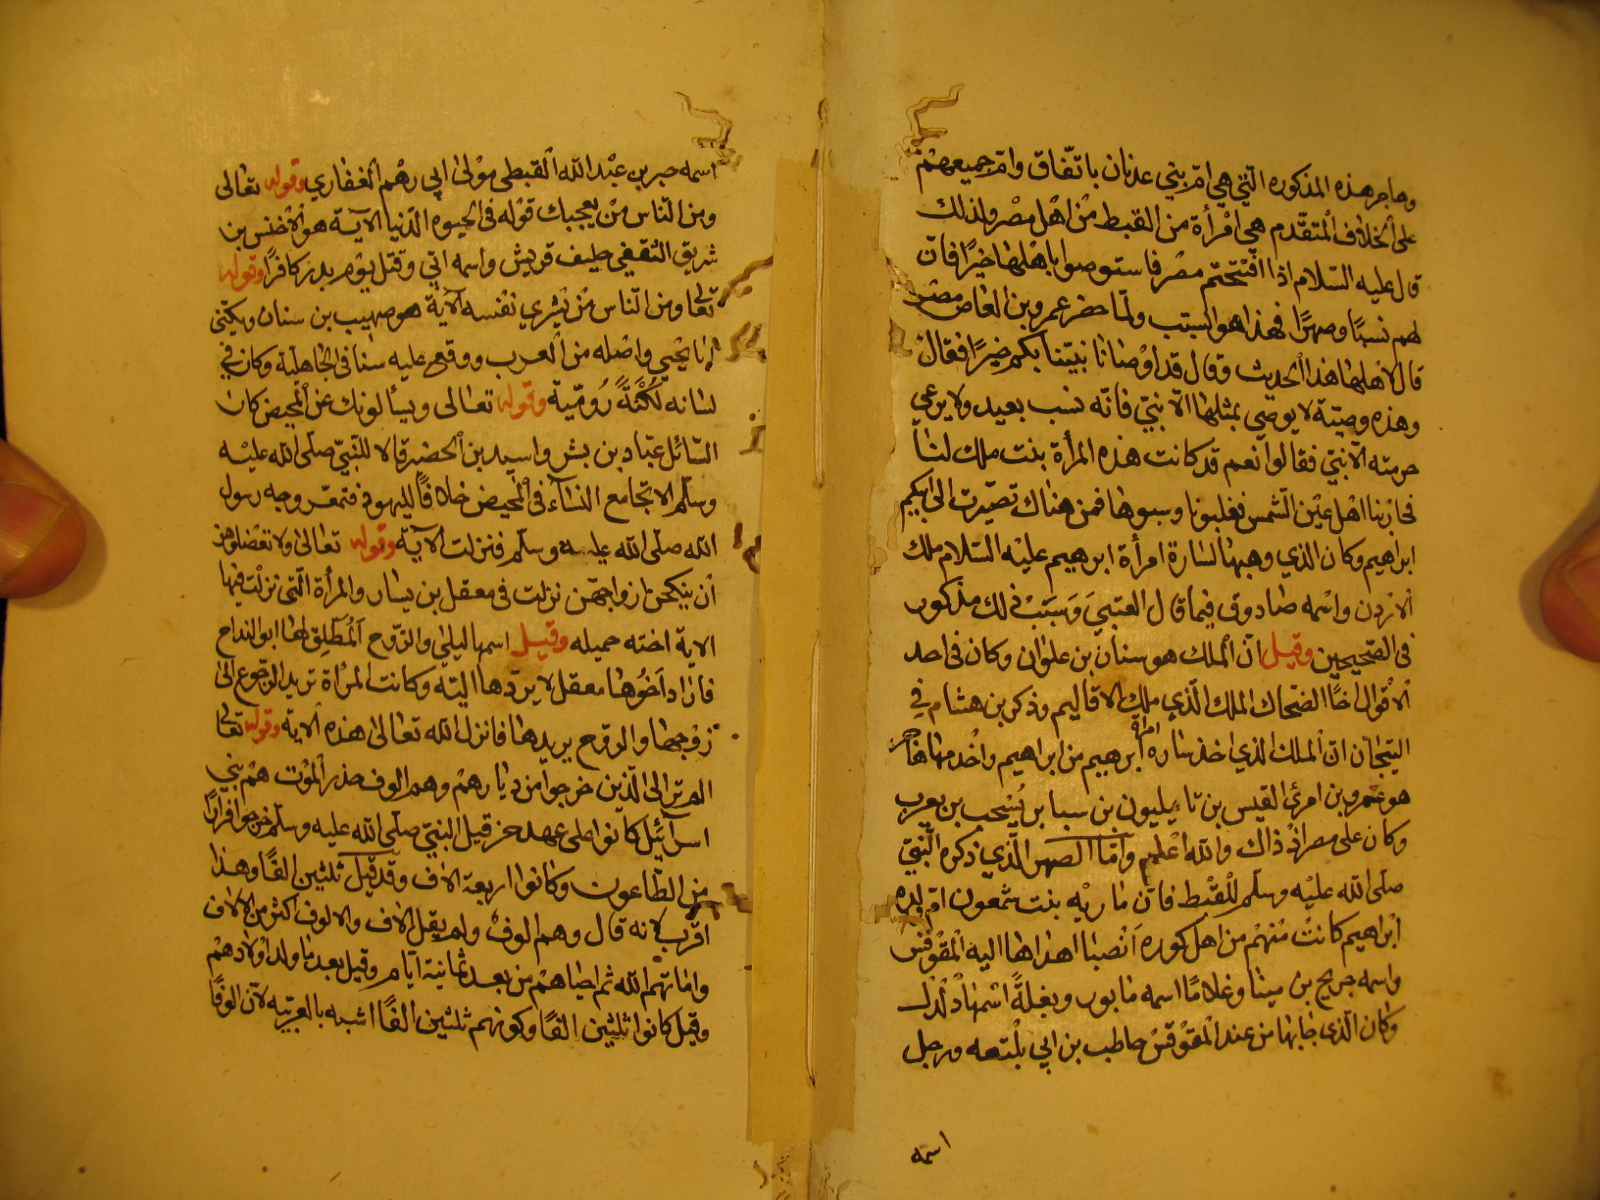 وهاجر هذه المذكوره الّتي هي امّ بني عدنان باتّفاق وامّ جميعهم
على الخلاف المتقدّم هي امْرأة من القبط منْ اهْل مصْر ولذلك
قال عليه السّلام اذا افتتحتم مصْر فاستوصوا باهْلها خيْرًا فانّ
لهم نسبًا وصهرًا فهذا هو السّبب ولمّا حضر عمرو بن العاص مصْر
قال لاهْلها هذا الحديث وقال قد اوْصانا نبيّنا بكم خيرًا فقالوا
وهذه وصيّة لا يوصي بمثلها الّا نبيّ فانّه نسب بعيد ولا يرعي
حرمته الّا نبيّ فقالوا نعم قد كانت هذه المرأة بنت ملك لنا
فحاربنا اهْل عيْن الشّمس فغلبونا وسبوها فمن هناك تصيّرت الى ابيكم
ابراهيم وكان الذي وهبها لسارة امرأة ابرهيم عليْه السّلام ملك
الاردن واسْمه صادوق فيما قال العتبيّ وسببْ ذلك مذكور
فى الصّحيحين وقيل انّ الملك هو سنان بن علوان وكان فى احد
الاقْوال اخًا الضّحاك الملك الّذي ملك الاقاليم وذكر بن هشام في
التّيجان انّ الملك الذي اخذ ساره امراة ابرهيم من ابراهيم واخْدمها هاجر
هو عمرو بن امرئ القيس بن بابيليون بن سبا بن يُشْحب بن يعرب
وكان على مصر اذْ ذاك والله اعْلم وامّا الصهر الّذي ذكره النّبيّ
صلّى الله عليْه وسلّم للْقبْط فانّ ماريْه بنت شمعون امّ ولده
ابْراهيم كانتْ منْهمْ من اهل كوره انْصنا اهْداها اليه المْقوْقس
واسمه جريج بن مينا وغلامًا اسمه مابور وبغلةً اسْمها دلْدل
وكان الّذى جا بها من عند المْقوْقسْ حاطب بن ابي بلْتعه ورجل
اسمه
اسمه جبر بن عبْد الله القبطى موْلى ابي رهْم الغفاري وقوله تعالى
ومن النّاس منْ يعجبك قوْله فى الحيوه الدّنيا الآية هو الاخْنس بن
شريق الثقفي حليف قريش واسمه ابّي وقتل يوْم بدر كافرًا وقوله
تعالى ومن النّاس منْ يشْري نفْسه الآية هو صهيب بن سنان ويكنّى
ابا يحْيي واصْله من العرب ووقع عليه سبا فى الجاهليّة وكان في
لسانه لُكْنةٌ رُوميّة وقوله تعالى ويسألونك عن المحيض كان
السّائل عبّاد بن بشر واسيد بن الحضير قالا للنّبيّ صلّى الله عليْه
وسلّم الا نجامع النّسآء فى المحيض خلافًا لليهود فتمعّر وجه رسول
الله صلّى الله عليه وسلّم فنزلت الآية وقوله تعالى ولا تعْضلوهنّ
أنْ ينكحْن ازواجهنّ نزلت فى معقل بن يسار والمرأة الّتى نزلتْ فيها
الاية اخته جميله وقيل اسمها ليلى والزّوج المُطَلِّق لها ابو البداح
فاراد اخُوها معقل لا يردّها اليْه وكانت المرْأة تريد الرّجوع الى
زوْجها والزوْج يريدها فانزل الله تعالى هذه الاية وقوله تعالى
الم تر الى الّذين خرجوا من ديارهمْ وهم الوف حذر الموْت همْ بني
اسرآئيل كانوا على عهد حزقيل النبيّ صلّى الله عليه وسلّم خرجوا فرارًا
من الطّاعون وكانوا اربعة الاف وقد قيل ثلثين الفًا وهذا
اقْرب لانه قال وهم الوفٌ ولم يقل الاف والالوف اكثر من الالاف
واماتهم الله ثم احياهمْ من بعد ثمانية ايّام وقيل بعد ما ولد اولادهمْ
وقيل كانوا ثلثين الفًا وكونهم ثلثين الفًا اشبه بالعربيّه لانّ الوفًا